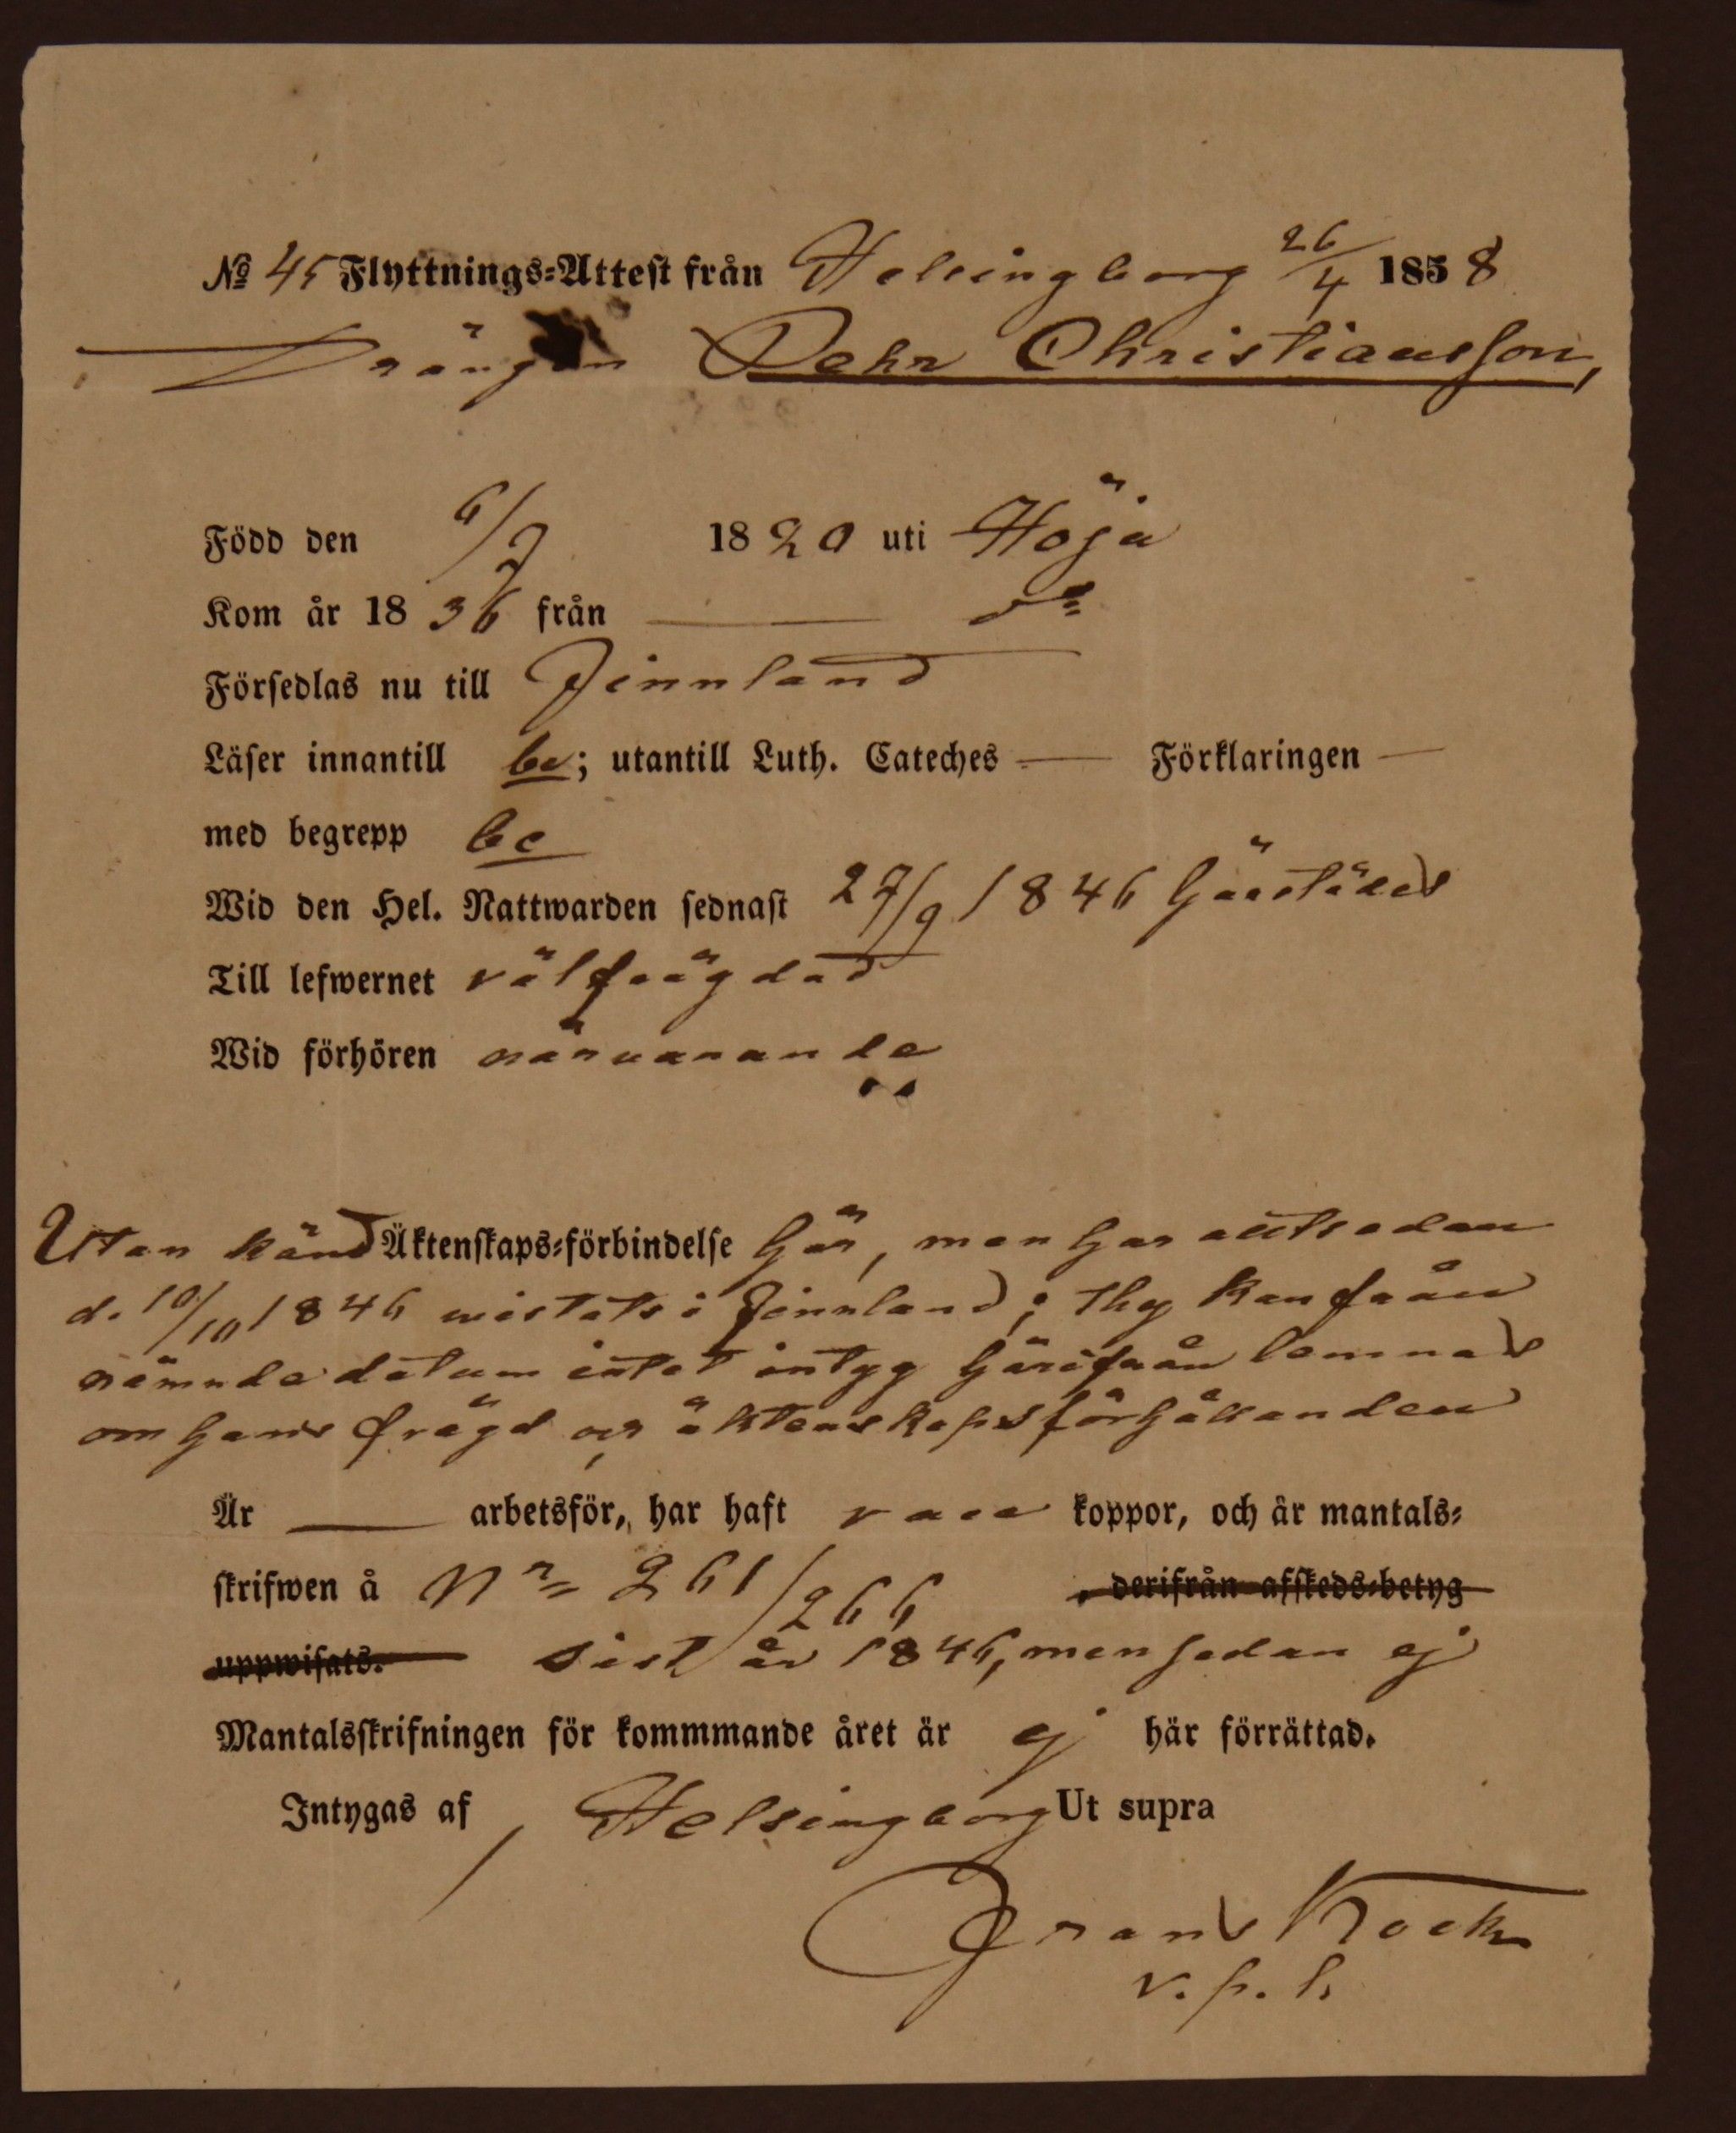 № 45 Flyttnings-Attest från Helsingborg 26/4 1858
Drängen Pehr Christiansson,
Född den 6/7 1820 uti Höja
Kom år 1836 från — do
Försedlas nu till Finnland
Läser innantill be; utantill Luth. Cateches — Förklaringen —
med begrepp be
Wid den Hel. Nattwarden sednast 27/9 1846 härstädes
Till lefwernet välfrägdad
Wid förhören närvarande
Utan känd Äktenskaps-förbindelse här, men har alltsedan
d. 10/10 1846 vistats i Finnland; thy kan från
nämnde datum intet intyg härifrån lemnas
om hans frägd och äktenskapsförhållanden
Är — arbetsför, har haft vacc koppor, och är mantals-
skrifwen å Nr 261/266 , derifrån afskeds-betyg
uppwisats. sist år 1846, men sedan ej
Mantalsskrifningen för kommmande året är ej här förrättad.
Intygas af , Helsingborg Ut supra
Frans Kock
v. p. l.